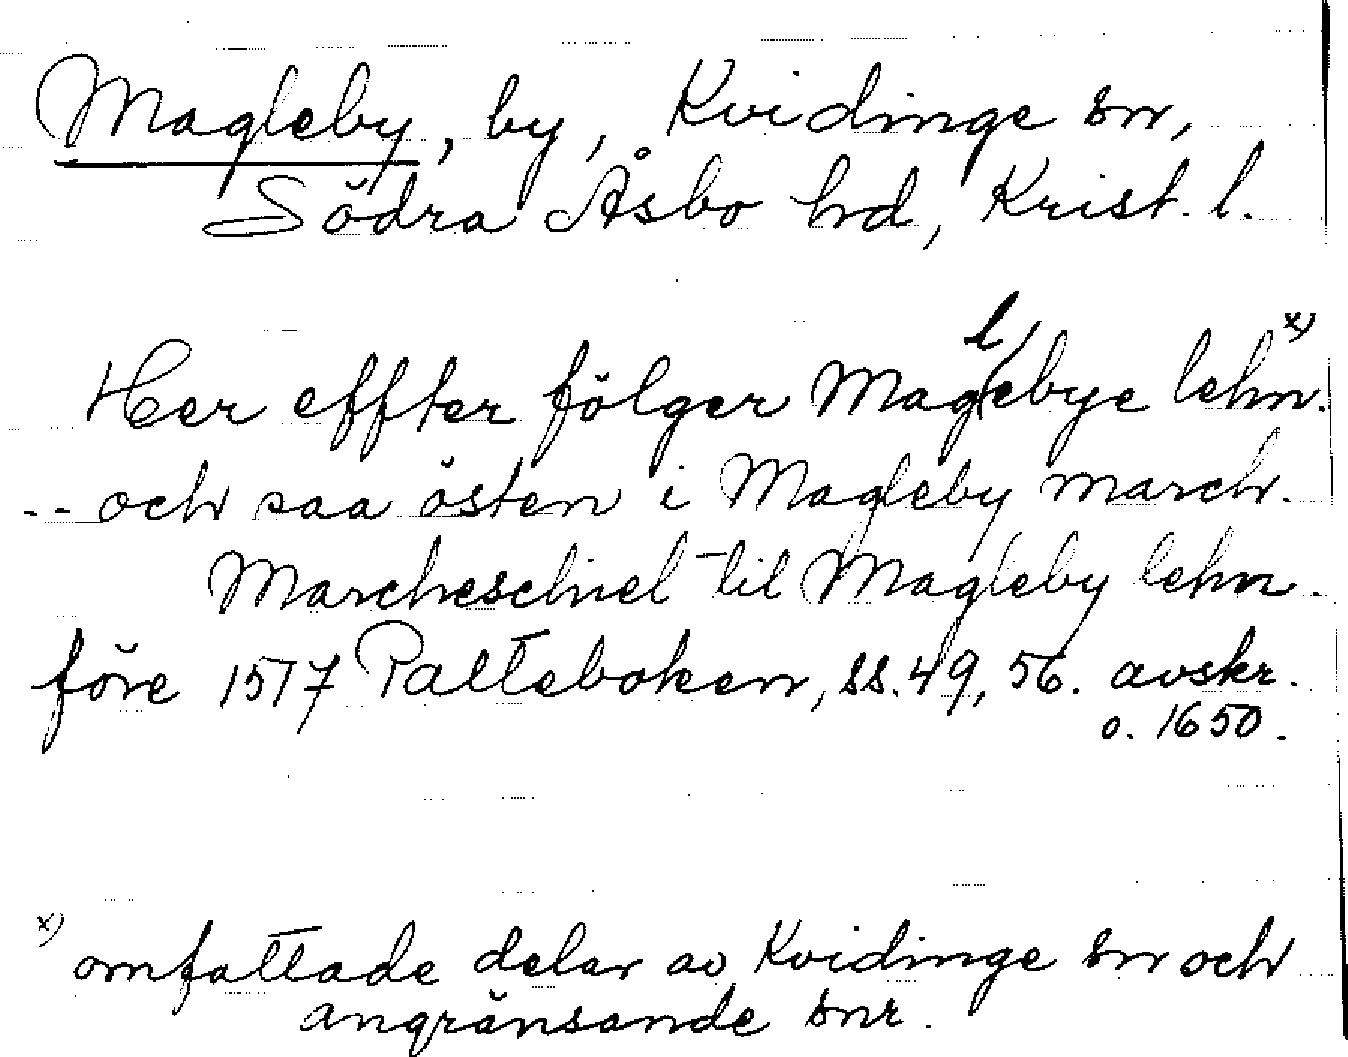 Magleby, by, Kvidinge sn,
Södra Åsbo hd, Krist. l.
Her effter fölger Maglebye lehn. x)
-- och saa östen i Magleby march.
Marcheschiel til Magleby lehn.
före 1517 Palteboken, ss. 49, 56. avskr.
o. 1650.
x) omfattade delar av Kvidinge sn och
angränsande snr.